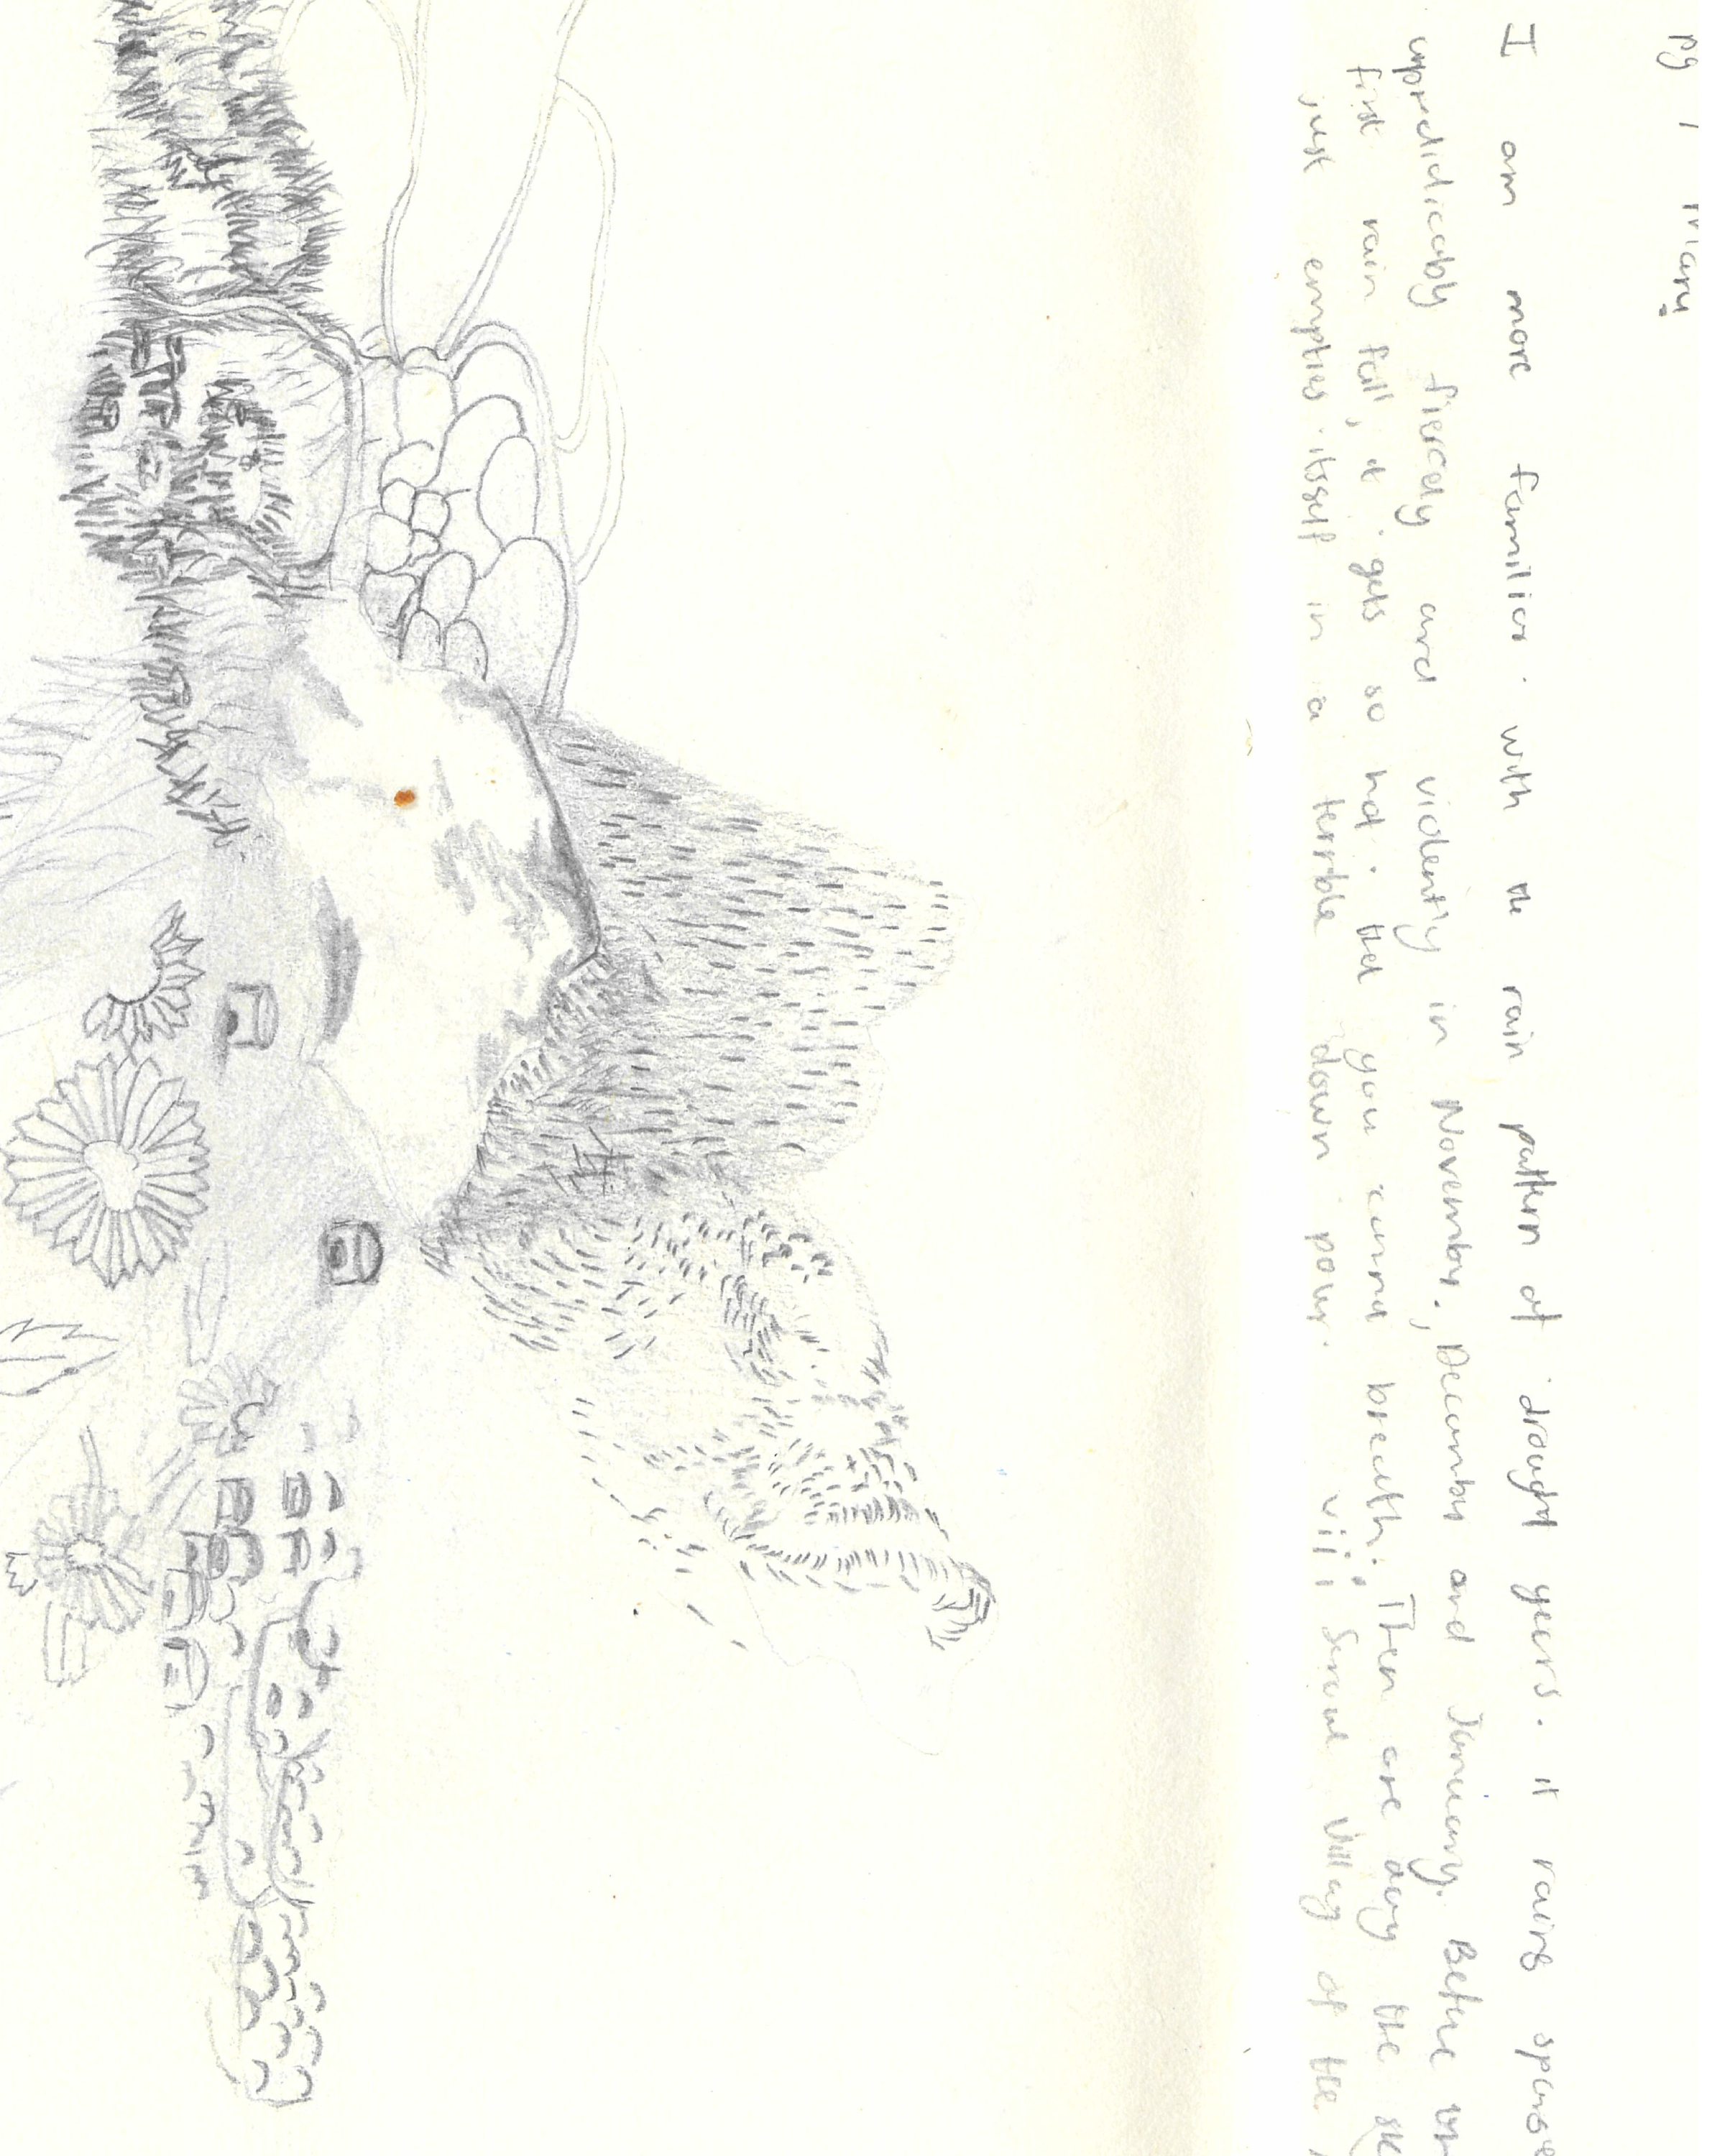 pg 1 Mary.
I am more familier. with the rain pattern of drought years. it rains sparse
unpredicicably fiercely and violently in November., Decembr and January. Before
first rain fall, it gets so hot. that you canna breath. Then are day the
just empties itself in a terrible down pour. viii Serowe Villag of the